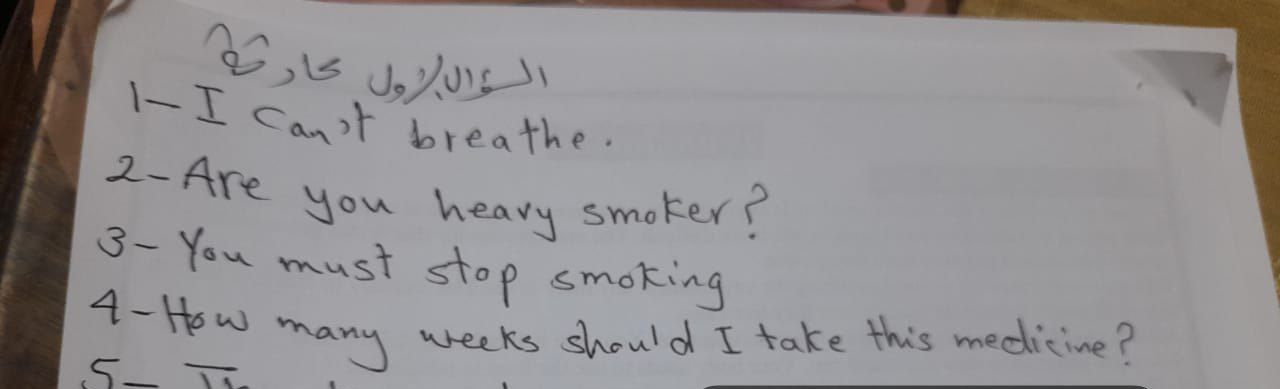 السؤال الاول
1- I can't breathe.
2- Are you heavy smoker?
3- You must stop smoking
4- How many weeks should I take this medicine?
5-